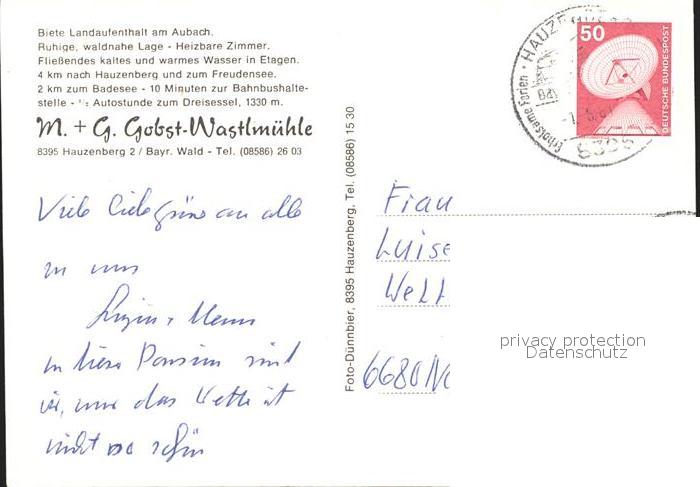 Biete Landaufenthalt am Aubach.
Ruhige, waldnahe Lage - Heizbare Zimmer.
Fließendes kaltes und warmes Wasser in Etagen.
4 km nach Hauzenberg und zum Freudensee.
2 km zum Badesee - 10 Minuten zur Bahnbushalte-
stelle - ½ Autostunde zum Dreisessel, 1330 m.
M. + G. Gobst-Wastlmühle
8395 Hauzenberg 2 / Bayr. Wald - Tel. (08586) 26 03
Viele liebe Grüße an alle
in dieser Pension sind
wir, nur das Wetter ist
nicht so schön
Foto-Dünnbier, 8395 Hauzenberg, Tel. (08586) 15 30
Erholsame Ferien · HAUZENBERG
8395
50
DEUTSCHE BUNDESPOST
Frau
Luise
Welt
6680 N
privacy protection
Datenschutz